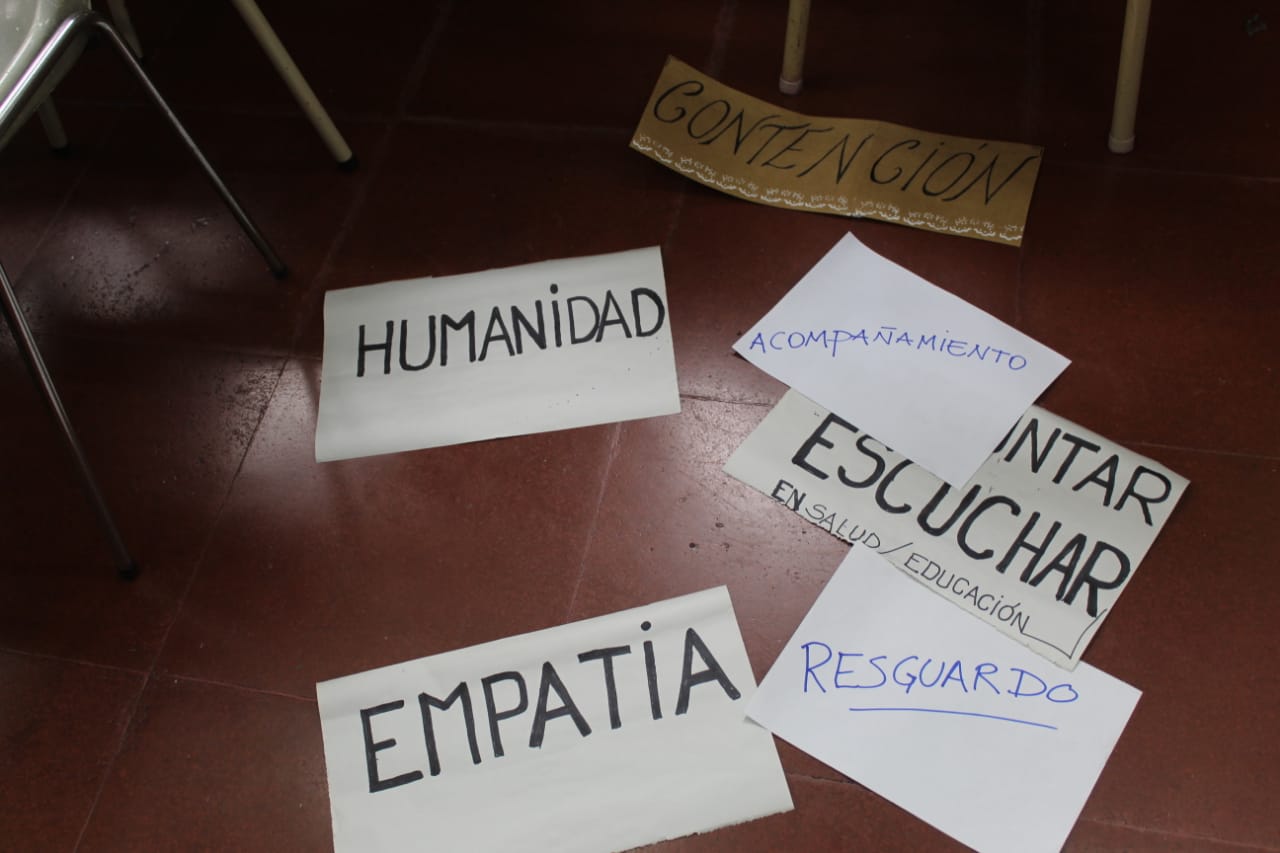 CONTENCIÓN
HUMANIDAD
ACOMPAÑAMIENTO
ESCUCHAR
EN SALUD/EDUCACIÓN
EMPATÍA
RESGUARDO